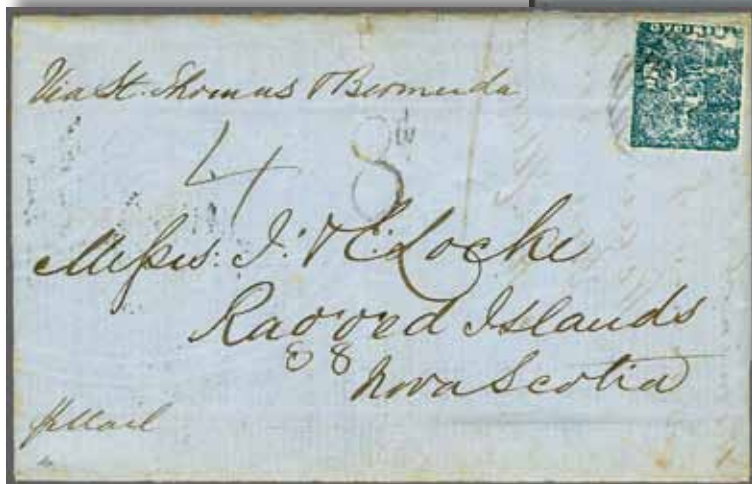 Via St. Thomas & Bermuda
4 8d
Messrs. J. & E. Locke
Ragged Islands
Nova Scotia
p Mail